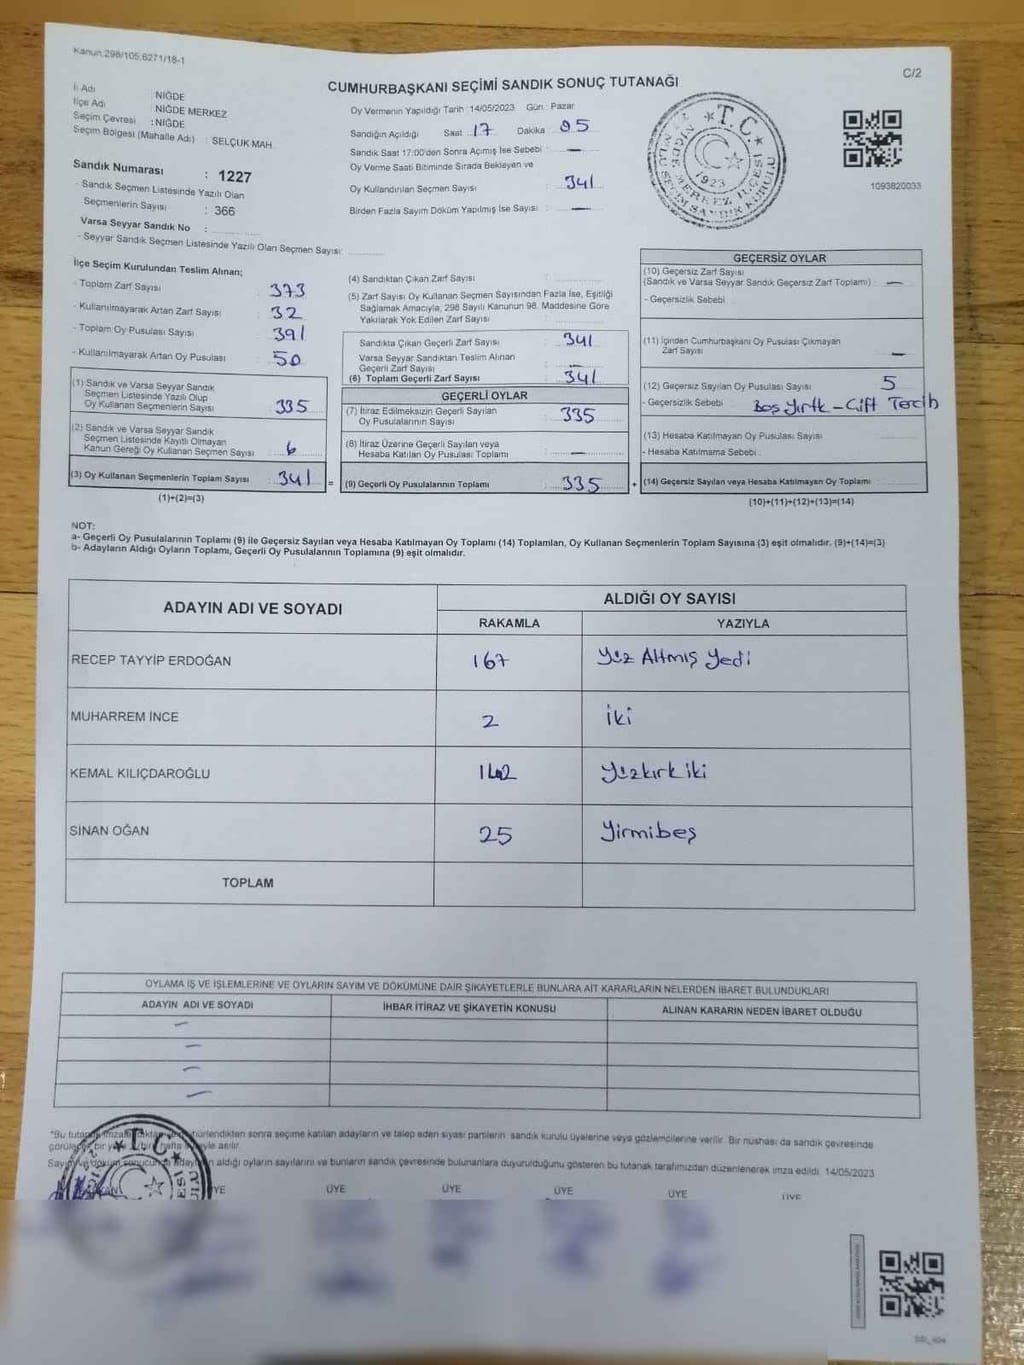 Kanun:298/105,6271/18-1
C/2
CUMHURBAŞKANI SEÇİMİ SANDIK SONUÇ TUTANAĞI
İl Adı : NİĞDE
İlçe Adı : NİĞDE MERKEZ
Seçim Çevresi : NİĞDE
Seçim Bölgesi (Mahalle Adı) : SELÇUK MAH.
Sandık Numarası : 1227
- Sandık Seçmen Listesinde Yazılı Olan
Seçmenlerin Sayısı : 366
Varsa Seyyar Sandık No :
- Seyyar Sandık Seçmen Listesinde Yazılı Olan Seçmen Sayısı:
Oy Vermenin Yapıldığı Tarih 14/05/2023 Gün : Pazar
Sandığın Açıldığı Saat 17 Dakika 05
Sandık Saat 17:00'den Sonra Açımış İse Sebebi : —
Oy Verme Saati Bitiminde Sırada Bekleyen ve
Oy Kullandırılan Seçmen Sayısı : 341
Birden Fazla Sayım Döküm Yapılmış İse Sayısı : —
T.C.
1923
1093820033
İlçe Seçim Kurulundan Teslim Alınan;
- Toplam Zarf Sayısı : 373
- Kullanılmayarak Artan Zarf Sayısı : 32
- Toplam Oy Pusulası Sayısı : 391
- Kullanılmayarak Artan Oy Pusulası : 50
(1) Sandık ve Varsa Seyyar Sandık
Seçmen Listesinde Yazılı Olup
Oy Kullanan Seçmenlerin Sayısı : 335
(2) Sandık ve Varsa Seyyar Sandık
Seçmen Listesinde Kayıtlı Olmayan
Kanun Gereği Oy Kullanan Seçmen Sayısı : 6
(3) Oy Kullanan Seçmenlerin Toplam Sayısı : 341 =
(1)+(2)=(3)
(4) Sandıktan Çıkan Zarf Sayısı :
(5) Zarf Sayısı Oy Kullanan Seçmen Sayısından Fazla İse, Eşitliği
Sağlamak Amacıyla, 298 Sayılı Kanunun 98. Maddesine Göre
Yakılarak Yok Edilen Zarf Sayısı :
Sandıkta Çıkan Geçerli Zarf Sayısı : 341
Varsa Seyyar Sandıktan Teslim Alınan
Geçerli Zarf Sayısı : —
(6) Toplam Geçerli Zarf Sayısı : 341
GEÇERLİ OYLAR
(7) İtiraz Edilmeksizin Geçerli Sayılan
Oy Pusulalarının Sayısı : 335
(8) İtiraz Üzerine Geçerli Sayılan veya
Hesaba Katılan Oy Pusulası Toplamı : —
(9) Geçerli Oy Pusulalarının Toplamı : 335 +
GEÇERSİZ OYLAR
(10) Geçersiz Zarf Sayısı
(Sandık ve Varsa Seyyar Sandık Geçersiz Zarf Toplamı) : —
- Geçersizlik Sebebi :
(11) İçinden Cumhurbaşkanı Oy Pusulası Çıkmayan
Zarf Sayısı : —
(12) Geçersiz Sayılan Oy Pusulası Sayısı : 5
- Geçersizlik Sebebi : Boş Yırtk - Çift Tercih
(13) Hesaba Katılmayan Oy Pusulası Sayısı :
- Hesaba Katılmama Sebebi :
(14) Geçersiz Sayılan veya Hesaba Katılmayan Oy Toplamı :
(10)+(11)+(12)+(13)=(14)
NOT:
a- Geçerli Oy Pusulalarının Toplamı (9) ile Geçersiz Sayılan veya Hesaba Katılmayan Oy Toplamı (14) Toplamları, Oy Kullanan Seçmenlerin Toplam Sayısına (3) eşit olmalıdır. (9)+(14)=(3)
b- Adayların Aldığı Oyların Toplamı, Geçerli Oy Pusulalarının Toplamına (9) eşit olmalıdır.
ADAYIN ADI VE SOYADI
ALDIĞI OY SAYISI
RAKAMLA YAZIYLA
RECEP TAYYİP ERDOĞAN 167 Yüz Altmış Yedi
MUHARREM İNCE 2 İki
KEMAL KILIÇDAROĞLU 142 Yüzkırk iki
SİNAN OĞAN 25 Yirmibeş
TOPLAM
OYLAMA İŞ VE İŞLEMLERİNE VE OYLARIN SAYIM VE DÖKÜMÜNE DAİR ŞİKAYETLERLE BUNLARA AİT KARARLARIN NELERDEN İBARET BULUNDUKLARI
ADAYIN ADI VE SOYADI İHBAR İTİRAZ VE ŞİKAYETİN KONUSU ALINAN KARARIN NEDEN İBARET OLDUĞU
—
—
—
—
*Bu tutanak sonra seçime katılan adayların ve talep eden siyasi partilerin sandık kurulu üyelerine veya gözlemcilerine verilir. Bir nüshası da sandık çevresinde
görülecek bir yere asılır
aldığı oyların sayılarını ve bunların sandık çevresinde bulunanlara duyurulduğunu gösteren bu tutanak tarafımızdan düzenlenerek imza edildi. 14/05/2023
ÜYE ÜYE ÜYE ÜYE ÜYE
T.C.